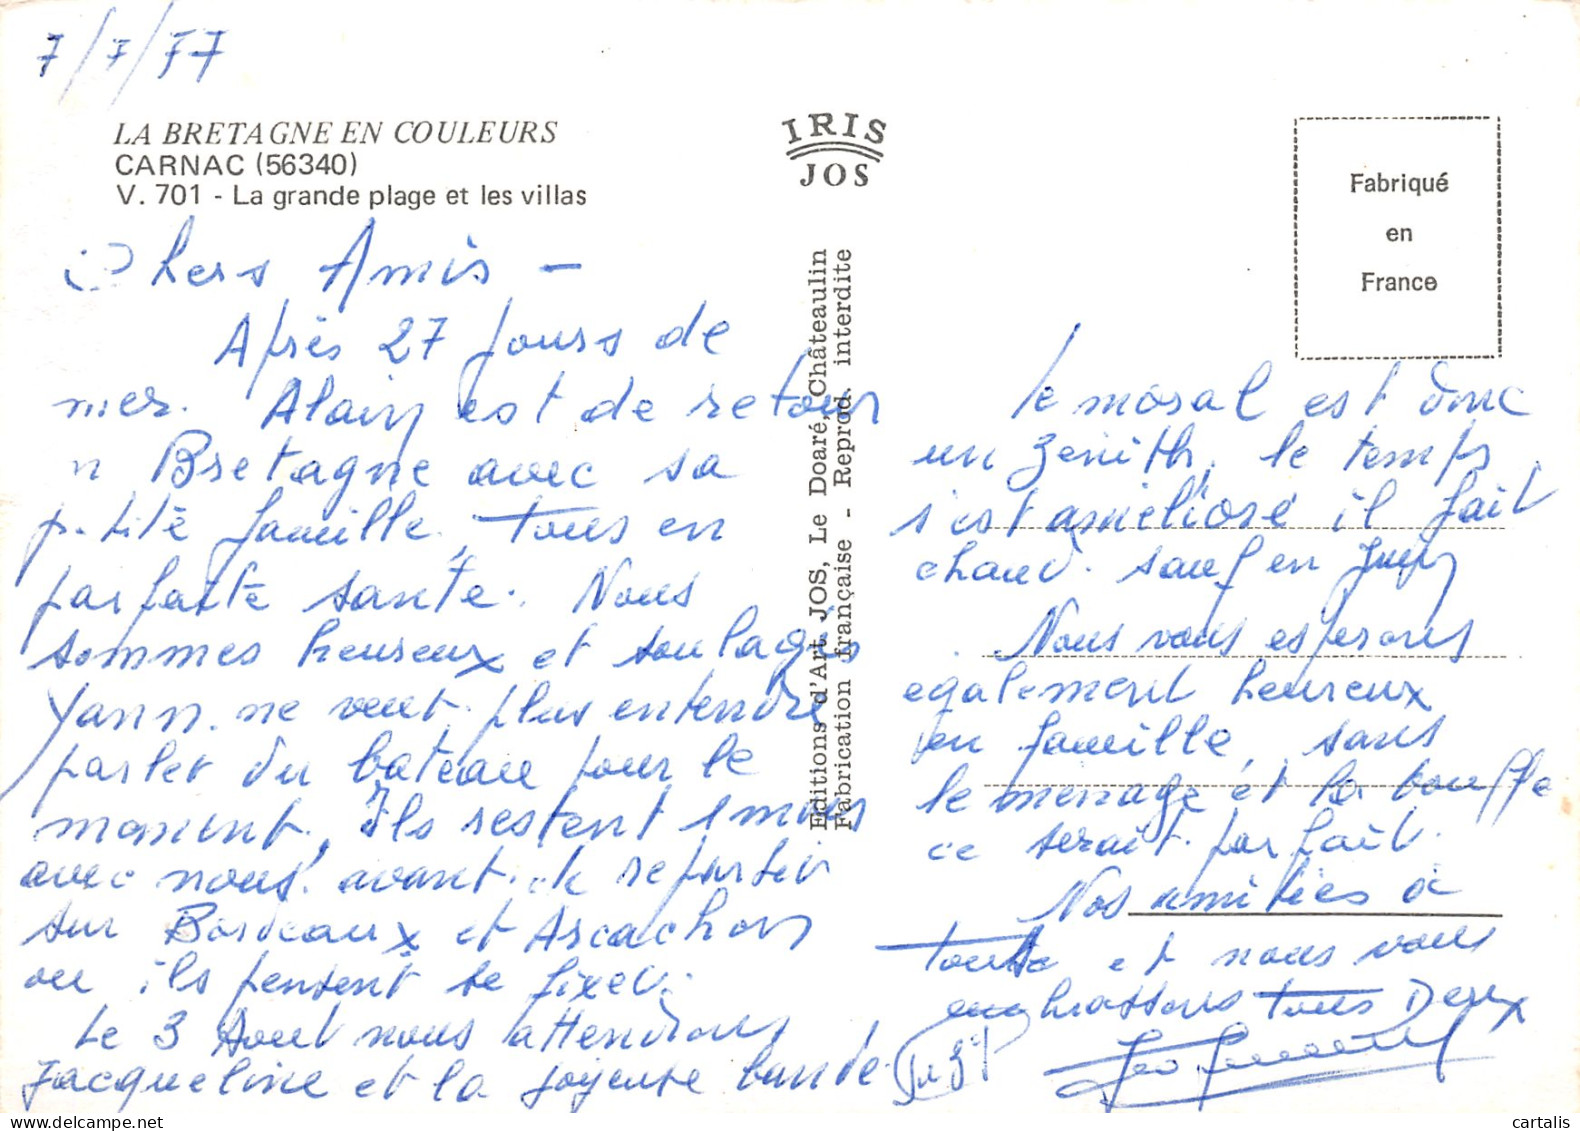 7/7/77
LA BRETAGNE EN COULEURS
CARNAC (56340)
V. 701 - La grande plage et les villas
IRIS
JOS
Fabriqué
en
France
Editions d'Art JOS, Le Doaré, Châteaulin
Fabrication française - Reprod. interdite
Chers Amis -
Après 27 jours de
mer. Alain est de retour
n Bretagne avec sa
p.tite famille, tous en
parfaite santé. Nous
sommes heureux et soulagés
Yann. ne veut plus entendre
parler du bateau pour le
moment, Ils restent 1 mois
avec nous. avant de repartir
sur Bordeaux et Arcachon
ou ils pensent se fixer.
Le 3 Aout nous attendons
Jacqueline et la joyeuse bande.
le moral est donc
un zénith, le temps
s'est amélioré il fait
chaud. sauf en
Nous vous espérons
egalement heureux
en famille, sans
le menage et la bouffe
ce serait parfait.
Nos amitiés à
toute et nous vous
embrassons tous Deux
cartalis